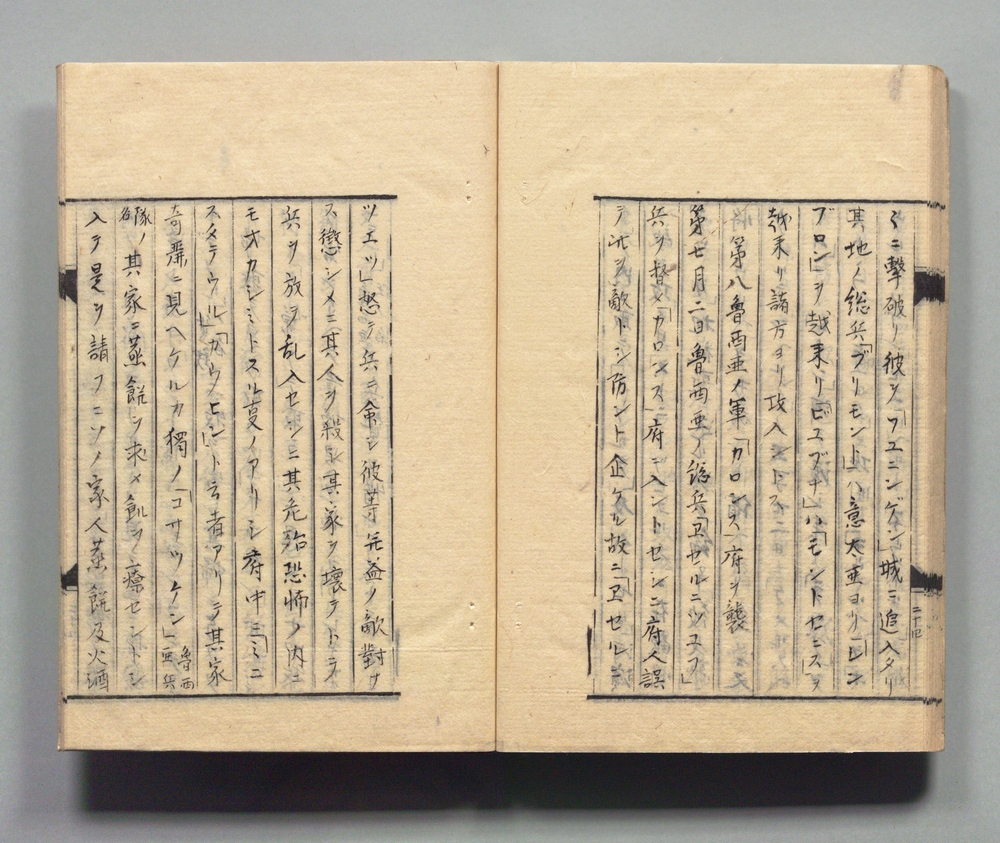 ミニ撃破リ彼ヲ「フユニンゲン」城ニ追入タリ
其地ノ総兵「ブリモント」ハ意太里ヨリ「レン
ブロン」ヲ越来リ「ビユブナ」ハ「モントセニス」ヲ
越来リ諸方ヨリ攻入ントス
第八魯西亜ノ軍「カロンス」府ヲ襲
第七月二日魯西亜ノ総兵「卫セルニツユフ」
兵ヲ督メ「カロンス」府ニ入ントセシニ府人誤
テ此ヲ敵トシ防ント企ケル故ニ「卫セルニ
ツエツ」怒テ兵ニ命シ彼等无益ノ敵對ナ
ス懲シメニ其人ヲ殺シ其家ヲ壊ラトテ
兵ヲ放テ乱入セシニ其危殆恐怖ノ内ニ
モオカシミトスル事ノアリシ府中ニ「ミニ
スタテウル」「カウヒン」ト云者アリテ其家
奇麗ニ見ヘケルカ獨ノ「コサツケン」魯西亜兵
隊名ノ其家ニ蒸餅ヲ求メ飢ヲ療セントシ
入テ是ヲ請フニソノ家人蒸餅及火酒
二十四